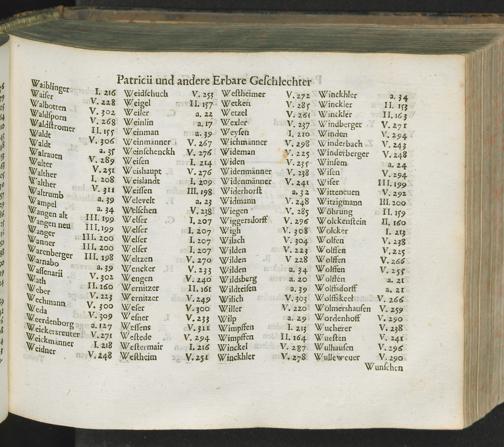 Patricii und andere Erbare Geschlechter
Waiblinger I. 216
Waiser V. 228
Walbotten V. 302
Waldsporn V. 268
Waldstromer II. 155
Walde V. 306
Waldt a. 35
Walrauen V. 289
Walter V. 251
Walther I. 208
Walther V. 311
Waltrumb a. 39
Wampel a. 34
Wangen alt III. 199
Wangen neu III. 199
Wanger III. 200
Wanner III. 200
Warenberger III. 198
Warnabo a. 39
Wassenaril V. 302
Wath II. 160
Weber V. 223
Wechmann V. 300
Weda V. 309
Weerdenborg a. 127
Weickersreuter V. 271
Weickmanner I. 218
Weidner V. 248
Weidschuch V. 253
Weigel II. 157
Weiler a. 22
Weinlin a. 17
Weinman a. 39
Weinmanner V. 267
Weinschenckh V. 276
Weisen I. 214
Weishaupt V. 276
Weislandt I. 209
Weissen III. 198
Welevelt a. 23
Welschen V. 218
Welser I. 207
Welser I. 207
Welser I. 207
Weltzen V. 270
Wencker V. 233
Wengen V. 240
Wernitzer II. 161
Wernitzer V. 249
Weser V. 300
Wesner V. 233
Wessens V. 312
Westede V. 294
Westermair I. 216
Westheim V. 251
Westheimer V. 272
Wetken V. 285
Wetzel V. 261
Wexler V. 237
Weysen I. 210
Wichmanner V. 298
Wideman V. 225
Widen V. 235
Widenmanner V. 238
Widenmanner V. 241
Widerhorst a. 32
Widmann V. 248
Wiegen V. 285
Wiggersdorff V. 296
Wigh V. 308
Wilach V. 304
Wilden V. 223
Wilden V. 228
Wilden a. 34
Wildsberg a. 20
Wildtersen a. 39
Wilich V. 303
Willer V. 220
Wilp a. 29
Wimpffen I. 215
Wimpffen II. 164
Winckel V. 287
Winckhler V. 278
Winckhler a. 34
Winckler II. 153
Winckler II. 163
Windberger V. 271
Winden V. 294
Winderbach V. 243
Winderberger V. 248
Winsem a. 24
Wisen V. 294
Wiser III. 199
Witzeneuen V. 292
Witzigmann III. 200
Wöhrung II. 159
Wolckenstein II. 160
Wolcker I. 213
Wolffen V. 238
Wolffen V. 225
Wolffen V. 266
Wolffen V. 255
Wolffen a. 21
Wolffsdorff a. 21
Wolffskeel V. 266
Wolmershausen V. 259
Wordenhoff V. 290
Wucherer V. 238
Wuesten V. 241
Wulhausen V. 296
Wulleweuer V. 290
Wunschen